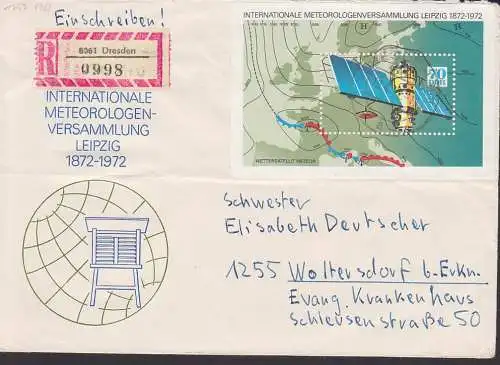 Einschreiben!
INTERNATIONALE METEOROLOGENVERSAMMLUNG LEIPZIG 1872-1972
R
8061 Dresden
0998
H
70
DDR
INTERNATIONALE
METEOROLOGEN-
VERSAMMLUNG
LEIPZIG
1872-1972
WETTERSATELLIT METEOR
Schwester
Elisabeth Deutscher
1255 Woltersdorf b. Erkn.
Evang. Krankenhaus
Schleusenstraße 50